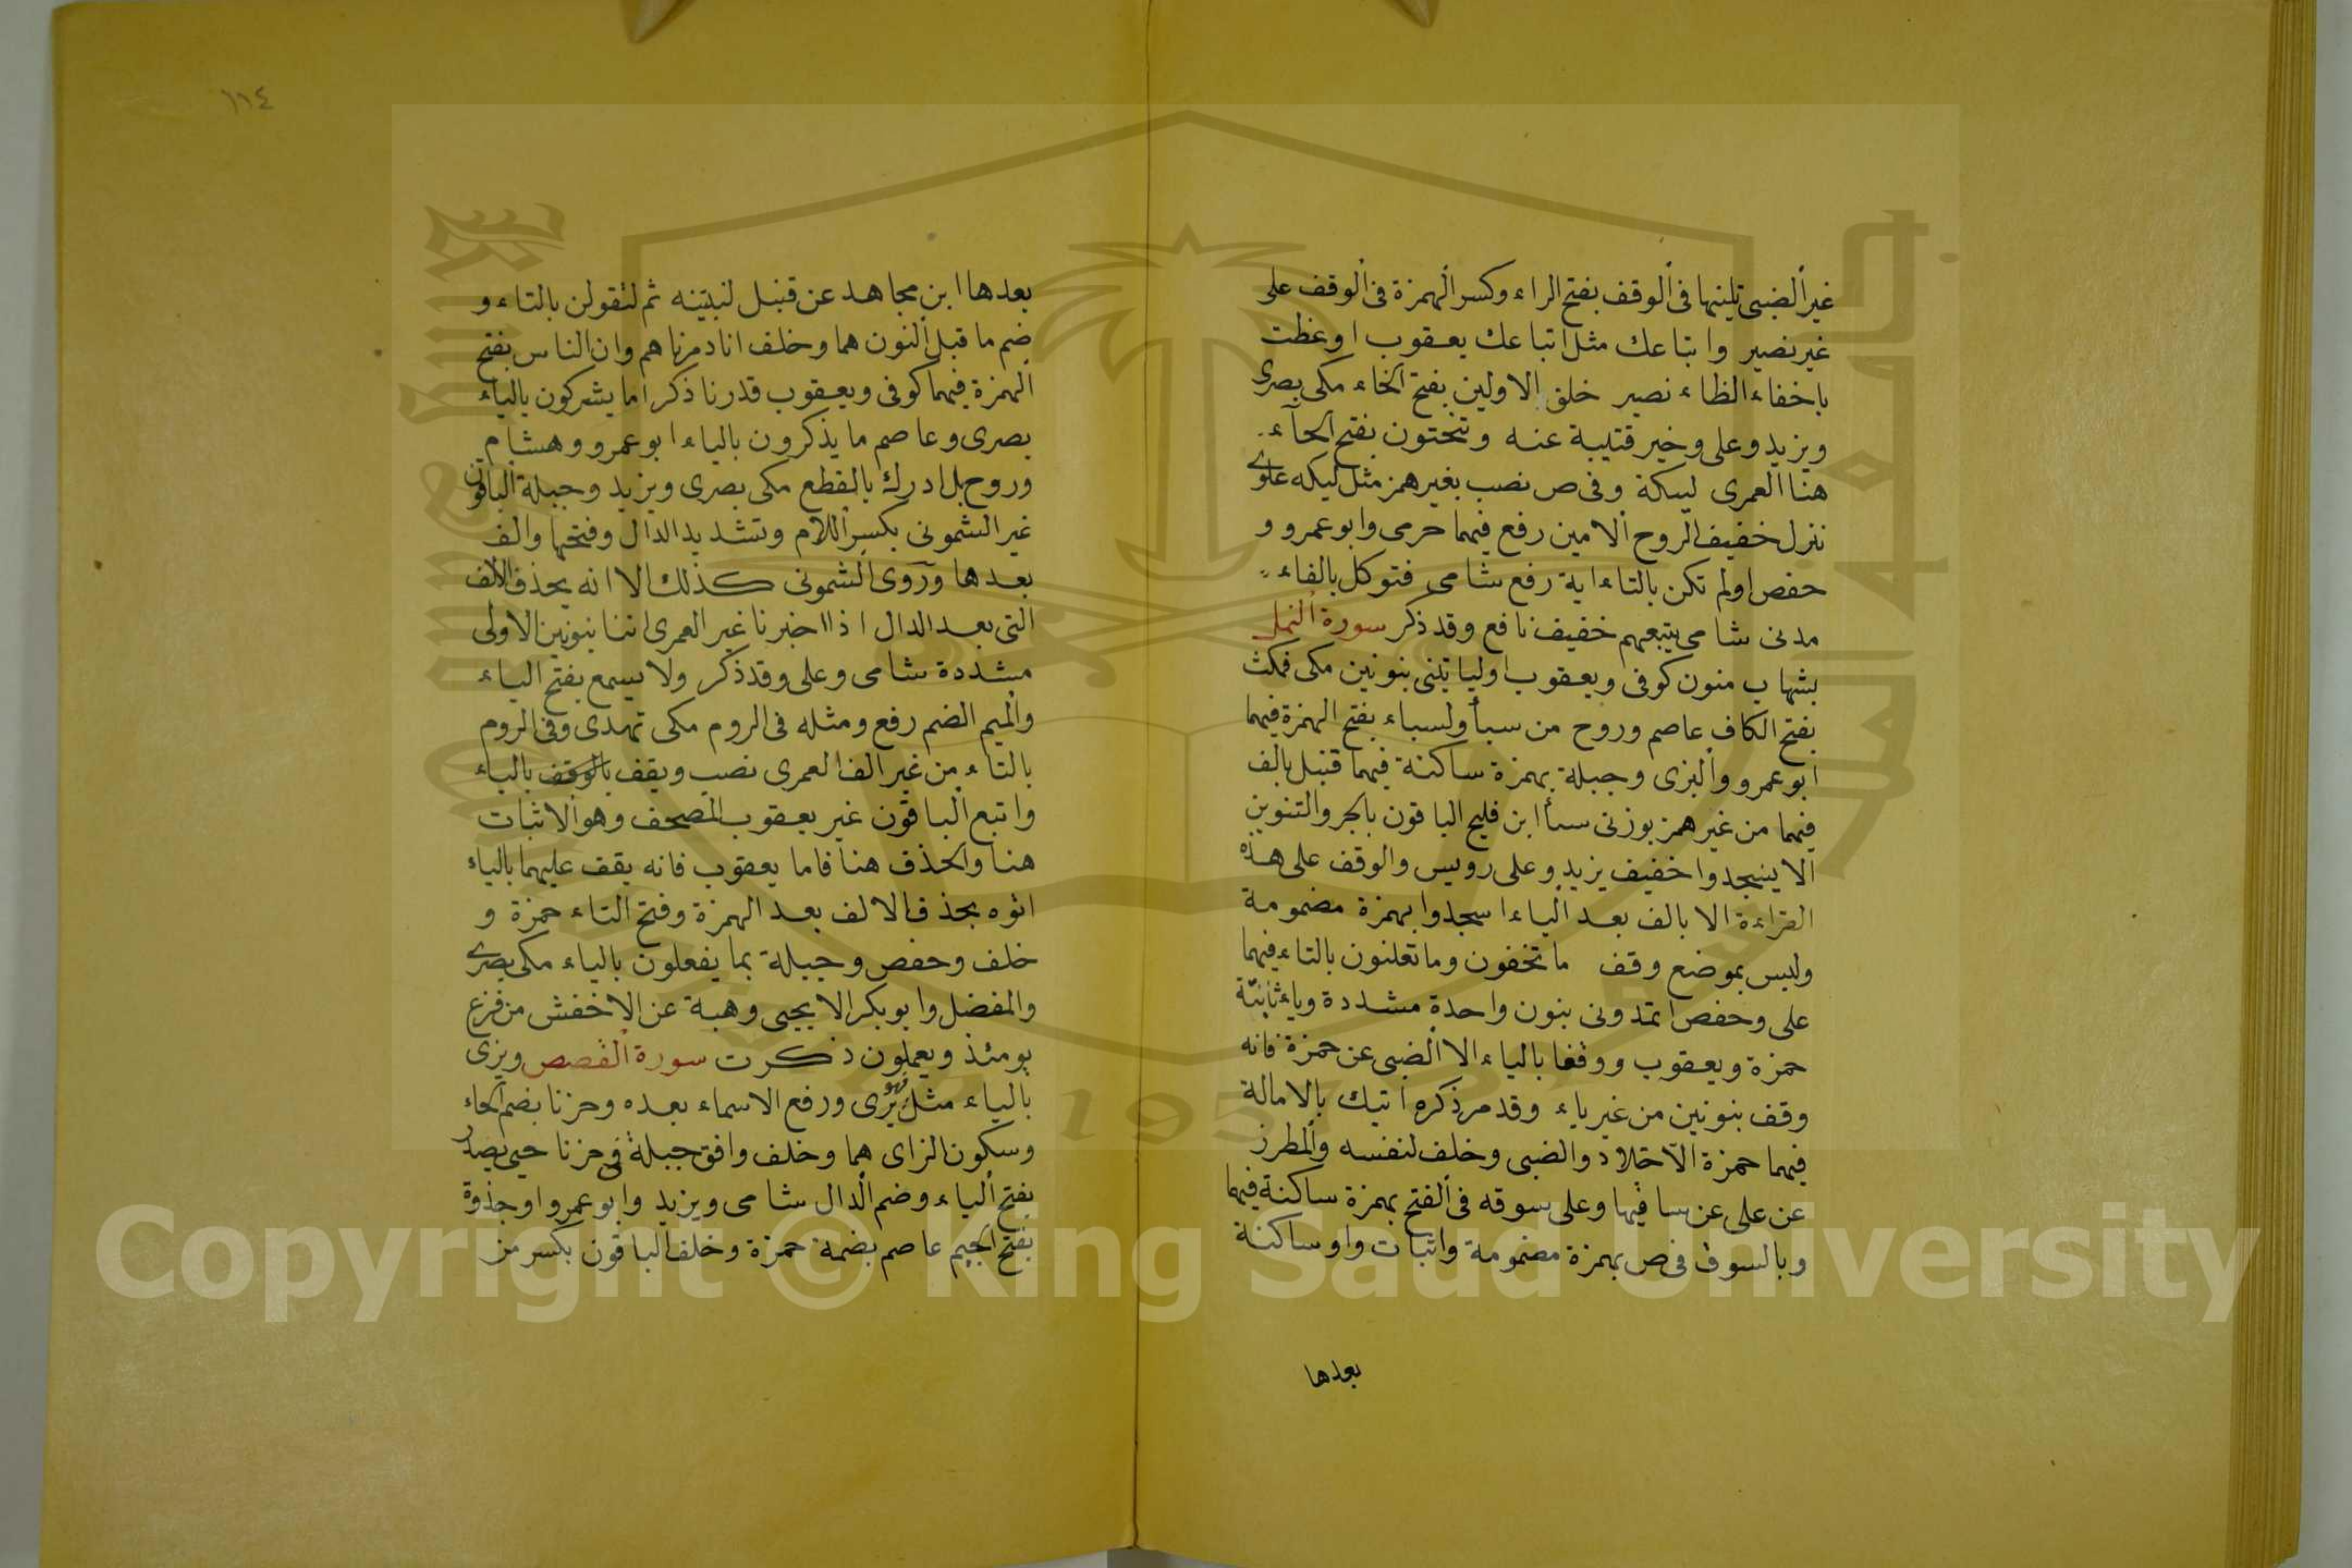 غير الضبي تلينها في الوقف بفتح الراء وكسر الهمزة في الوقف على
غير نصير واتباعك مثل اتباعك يعقوب اوعظت
باخفاء الظاء نصير خلق الاولين بفتح الخاء مكي بصرى
ويزيد وعلى وخير قتيبة عنه وتنحتون بفتح الحآء
هنا العمرى ليكة وفى ص نصب بغير همز مثل ليكه علوى
نزل خفيف الروح الامين رفع فيهما حرمى وابوعمرو و
حفص اولم تكن بالتاء اية رفع شامى فتوكل بالفاء
مدنى شامى يتبعهم خفيف نافع وقد ذكر سورة النمل
بشهاب منون كوفى ويعقوب اولياتينى بنونين مكى فمكث
بفتح الكاف عاصم وروح من سبأ ولسباء بفتح الهمزة فيهما
ابوعمرو والبزى وجبلة بهمزة ساكنة فيهما قنبل بالف
فيهما من غير همز بوزنى سبأ ابن فليح الباقون بالجر والتنوين
الا يسجدوا خفيف يزيد وعلى رويس والوقف على هذه
القراءة الا بالف بعد الياء اسجدوا بهمزة مضمومة
وليس بموضع وقف ما تخفون وما تعلنون بالتاء فيهما
على وحفص اتمدونى بنون واحدة مشددة وياء ثابتة
حمزة ويعقوب ووقفا بالياء الا الضبى عن حمزة فانه
وقف بنونين من غير ياء وقد مر ذكره اتيك بالامالة
فيهما حمزة الا خلاد والضبى وخلف لنفسه والمطرز
عن على عن ساقيها وعلى سوقه فى الفتح بهمزة ساكنة فيهما
وبالسوق فى ص بهمزة مضمومة واثبات واو ساكنة
بعدها
١١٤
بعدها ابن مجاهد عن قنبل لنبيتنه ثم لنقولن بالتاء و
ضم ما قبل النون هما وخلف انا دمرناهم وان الناس بفتح
الهمزة فيهما كوفى ويعقوب قدرنا ذكر اما يشركون بالياء
بصرى وعاصم ما يذكرون بالياء ابوعمرو وهشام
وروح بل ادرك بالقطع مكى بصرى ويزيد وجبلة الباقون
غير الشمونى بكسر اللام وتشديد الدال وفتحها والف
بعدها وروى الشمونى كذلك الا انه يحذف الالف
التى بعد الدال اذا اخبرنا غير العمرى اننا بنونين الاولى
مشددة شامى وعلى وقد ذكر ولا يسمع بفتح الياء
والميم الضم رفع ومثله فى الروم مكى تهدى وفى الروم
بالتاء من غير الف العمرى نصب ويقف بالوقف بالياء
واتبع الباقون غير يعقوب المصحف وهو الاثبات
هنا والحذف هنا فاما يعقوب فانه يقف عليهما بالياء
اتوه بحذف الالف بعد الهمزة وفتح التاء حمزة و
خلف وحفص وجبلة بما يفعلون بالياء مكى بصرى
والمفضل وابوبكر الا يحيى وهبة عن الاخفش من فزع
يومئذ ويعملون ذكرت سورة القصص ويرى
بالياء مثل يرى ورفع الاسماء بعده وحزنا بضم الحاء
وسكون الزاى هما وخلف وافق جبلة فى حزنا حيى يصدر
بفتح الياء وضم الدال شامى ويزيد وابوعمرو اوجذوة
بفتح الجيم عاصم بضمة حمزة وخلف الباقون بكسر من
Copyright © King Saud University
1957